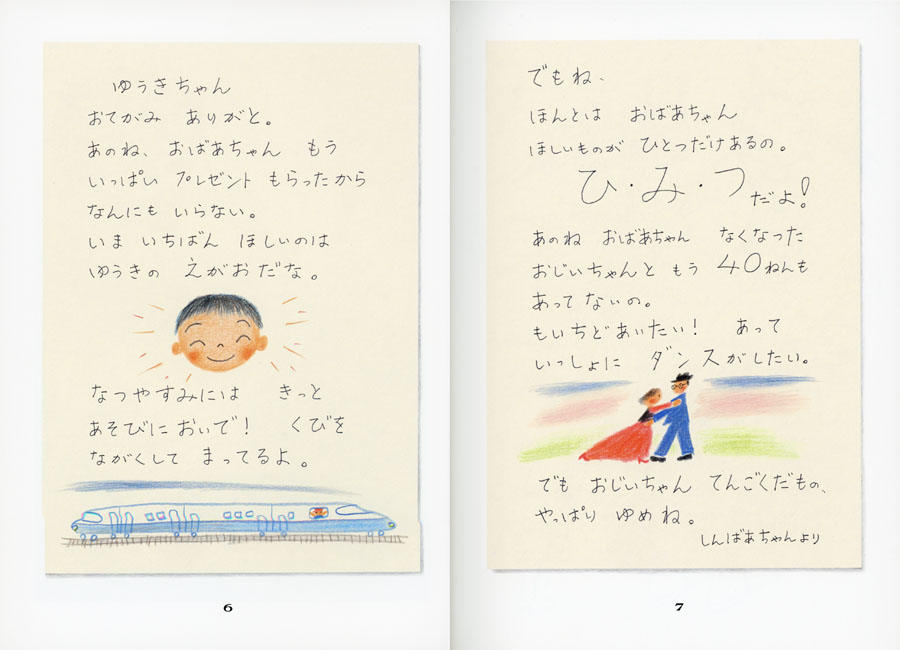 ゆうきちゃん
おてがみ ありがと。
あのね、おばあちゃん もう
いっぱい プレゼント もらったから
なんにも いらない。
いま いちばん ほしいのは
ゆうきの えがおだな。
なつやすみには きっと
あそびに おいで! くびを
ながくして まってるよ。
6
でもね、
ほんとは おばあちゃん
ほしいものが ひとつだけあるの。
ひ・み・つだよ!
あのね おばあちゃん なくなった
おじいちゃんと もう 40ねんも
あってないの。
もいちど あいたい! あって
いっしょに ダンスがしたい。
でも おじいちゃん てんごくだもの、
やっぱり ゆめね。
しんばあちゃんより
7